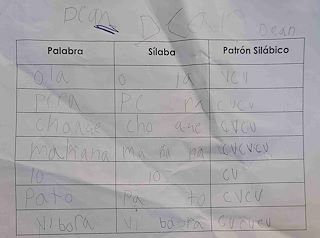 Dean Dean Dean
Palabra Sílaba Patrón Silábico
ola o la VCV
pera Pe ra CVCV
cho que CVCV
mañana ma ña na CVCVCV
lo lo CV
Pato Pa to CVCV
Vibora Vi bo ra CVCVCV